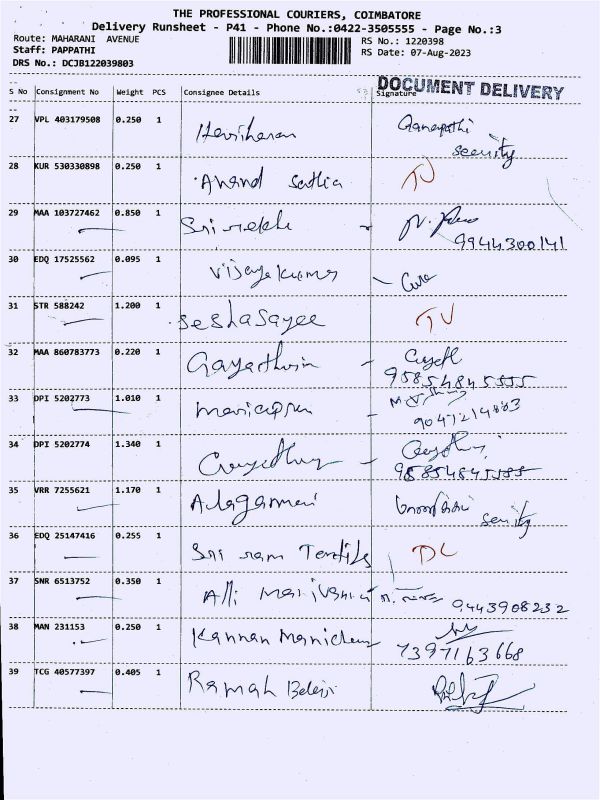 THE PROFESSIONAL COURIERS, COIMBATORE
Delivery Runsheet - P41 - Phone No.:0422-3505555 - Page No.:3
Route: MAHARANI AVENUE
Staff: PAPPATHI
DRS No.: DCJB122039803
RS No.: 1220398
RS Date: 07-Aug-2023
DOCUMENT DELIVERY
S No Consignment No Weight PCS Consignee Details Signature
27 VPL 403179508 0.250 1 Hariharan Ganapathi
security
28 KUR 530330898 0.250 1 Anand Sathia TV
29 MAA 103727462 0.850 1 Sri rekha
9944300141
30 EDQ 17525562 0.095 1 Vijayakumar
31 STR 588242 1.200 1 Seshasayee TV
32 MAA 860783773 0.220 1 Gayathri
95854845555
33 DPI 5202773 1.010 1
34 DPI 5202774 1.340 1
95854845555
35 VRR 7255621 1.170 1 Alagammai
security
36 EDQ 25147416 0.255 1 Sri ram Textils DL
37 SNR 6513752 0.350 1 Alli
9443908232
38 MAN 231153 0.250 1 Kannan
7397163668
39 TCG 40577397 0.405 1 Ramah Belaji